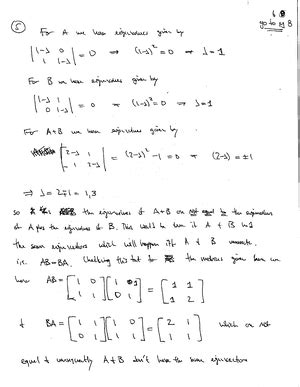 5 For A we have eigenvalues given by
|1-λ 0; 1 1-λ| = 0 ⇒ (1-λ)² = 0 ⇒ λ=1
For B we have eigenvalues given by
|1-λ 1; 0 1-λ| = 0 ⇒ (1-λ)² = 0 ⇒ λ=1
For A+B we have eigenvalues given by
|2-λ 1; 1 2-λ| = (2-λ)² - 1 = 0 ⇒ (2-λ) = ±1
⇒ λ = 2∓1 = 1,3
so the eigenvalues of A+B are not equal to the eigenvalues
of A plus the eigenvalues of B. This will be true if A & B had
the same eigenvectors which will happen iff A & B commute.
i.e. AB=BA. Checking this out for the matrices given here we
have AB = [1 0; 1 1] [1 1; 0 1] = [1 1; 1 2]
& BA = [1 1; 0 1] [1 0; 1 1] = [2 1; 1 1] which are not
equal & consequently A & B don't have the same eigenvectors